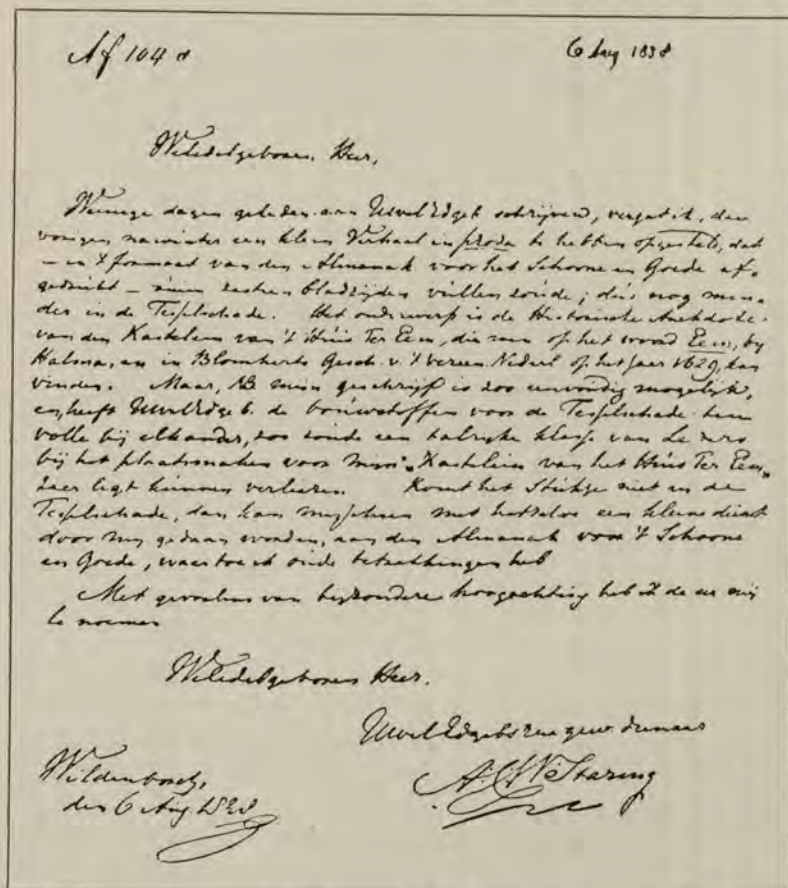 Af 104 d
6 Aug 1838
Weledelgeboren Heer,
Weinige dagen geleden aan UwelEdgeb. schrijvend, vergat ik, den
vorigen nawinter een klein Verhaal in proza te hebben opgesteld, dat
– in 't formaat van den Almanak voor het Schoone en Goede af-
gedrukt – ruim zestien bladzijden vullen zoude; dus nog min-
der in de Tesselschade. Het onderwerp is de Historische Anekdote
van den Kastelein van 't Huis Ter Eem, die men op het woord Eem, by
Halma, en in Blomherts Gesch. v. 't vereen. Nederl. op het jaar 1629, kan
vinden. Maar, NB mijn geschrijf is zoo eenvoudig mogelijk,
en, heeft UwelEdgeb. de bouwstoffen voor de Tesselschade ten
volle bij elkander, zoo zoude een talryke klasse van Lezers
bij het plaatsmaken voor mijn "Kastelein van het Huis Ter Eem"
zeer ligt kunnen verliezen. Komt het Stukje niet in de
Tesselschade, dan kan misschien met hetzelve een kleine dienst
door mij gedaan worden, aan den Almanach voor 't Schoone
en Goede, waartoe ik oude betrekkingen heb
Met gevoelens van byzondere hoogachting heb ik de eer mij
te noemen
Weledelgeboren Heer.
UwelEdgeb. zeer gew. dienaar
A.C.W. Staring
Wildenborch,
den 6 Aug. 1838